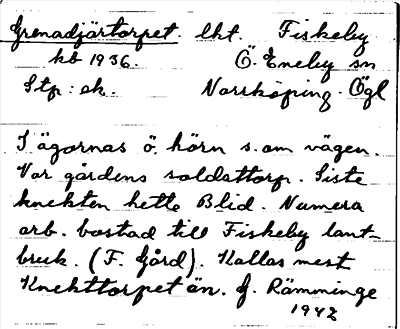 Grenadjärtorpet lht. Fiskeby
kb 1936. Ö. Eneby sn
Stp: ek. Norrköping. Ögl
I ägornas ö. hörn s. om vägen.
Var gårdens soldattorp. Siste
knekten hette Blid. Numera
arb. bostad till Fiskeby lant-
bruk. (F. Gård). Kallas mest
Knekttorpet än. J. Rämminge